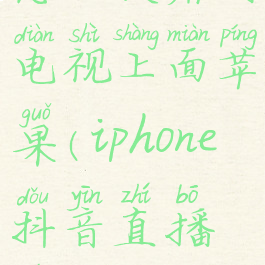 diàn shì shàng miàn píng
电视上面苹
guǒ
果(iphone
dǒu yīn zhí bō
抖音直播